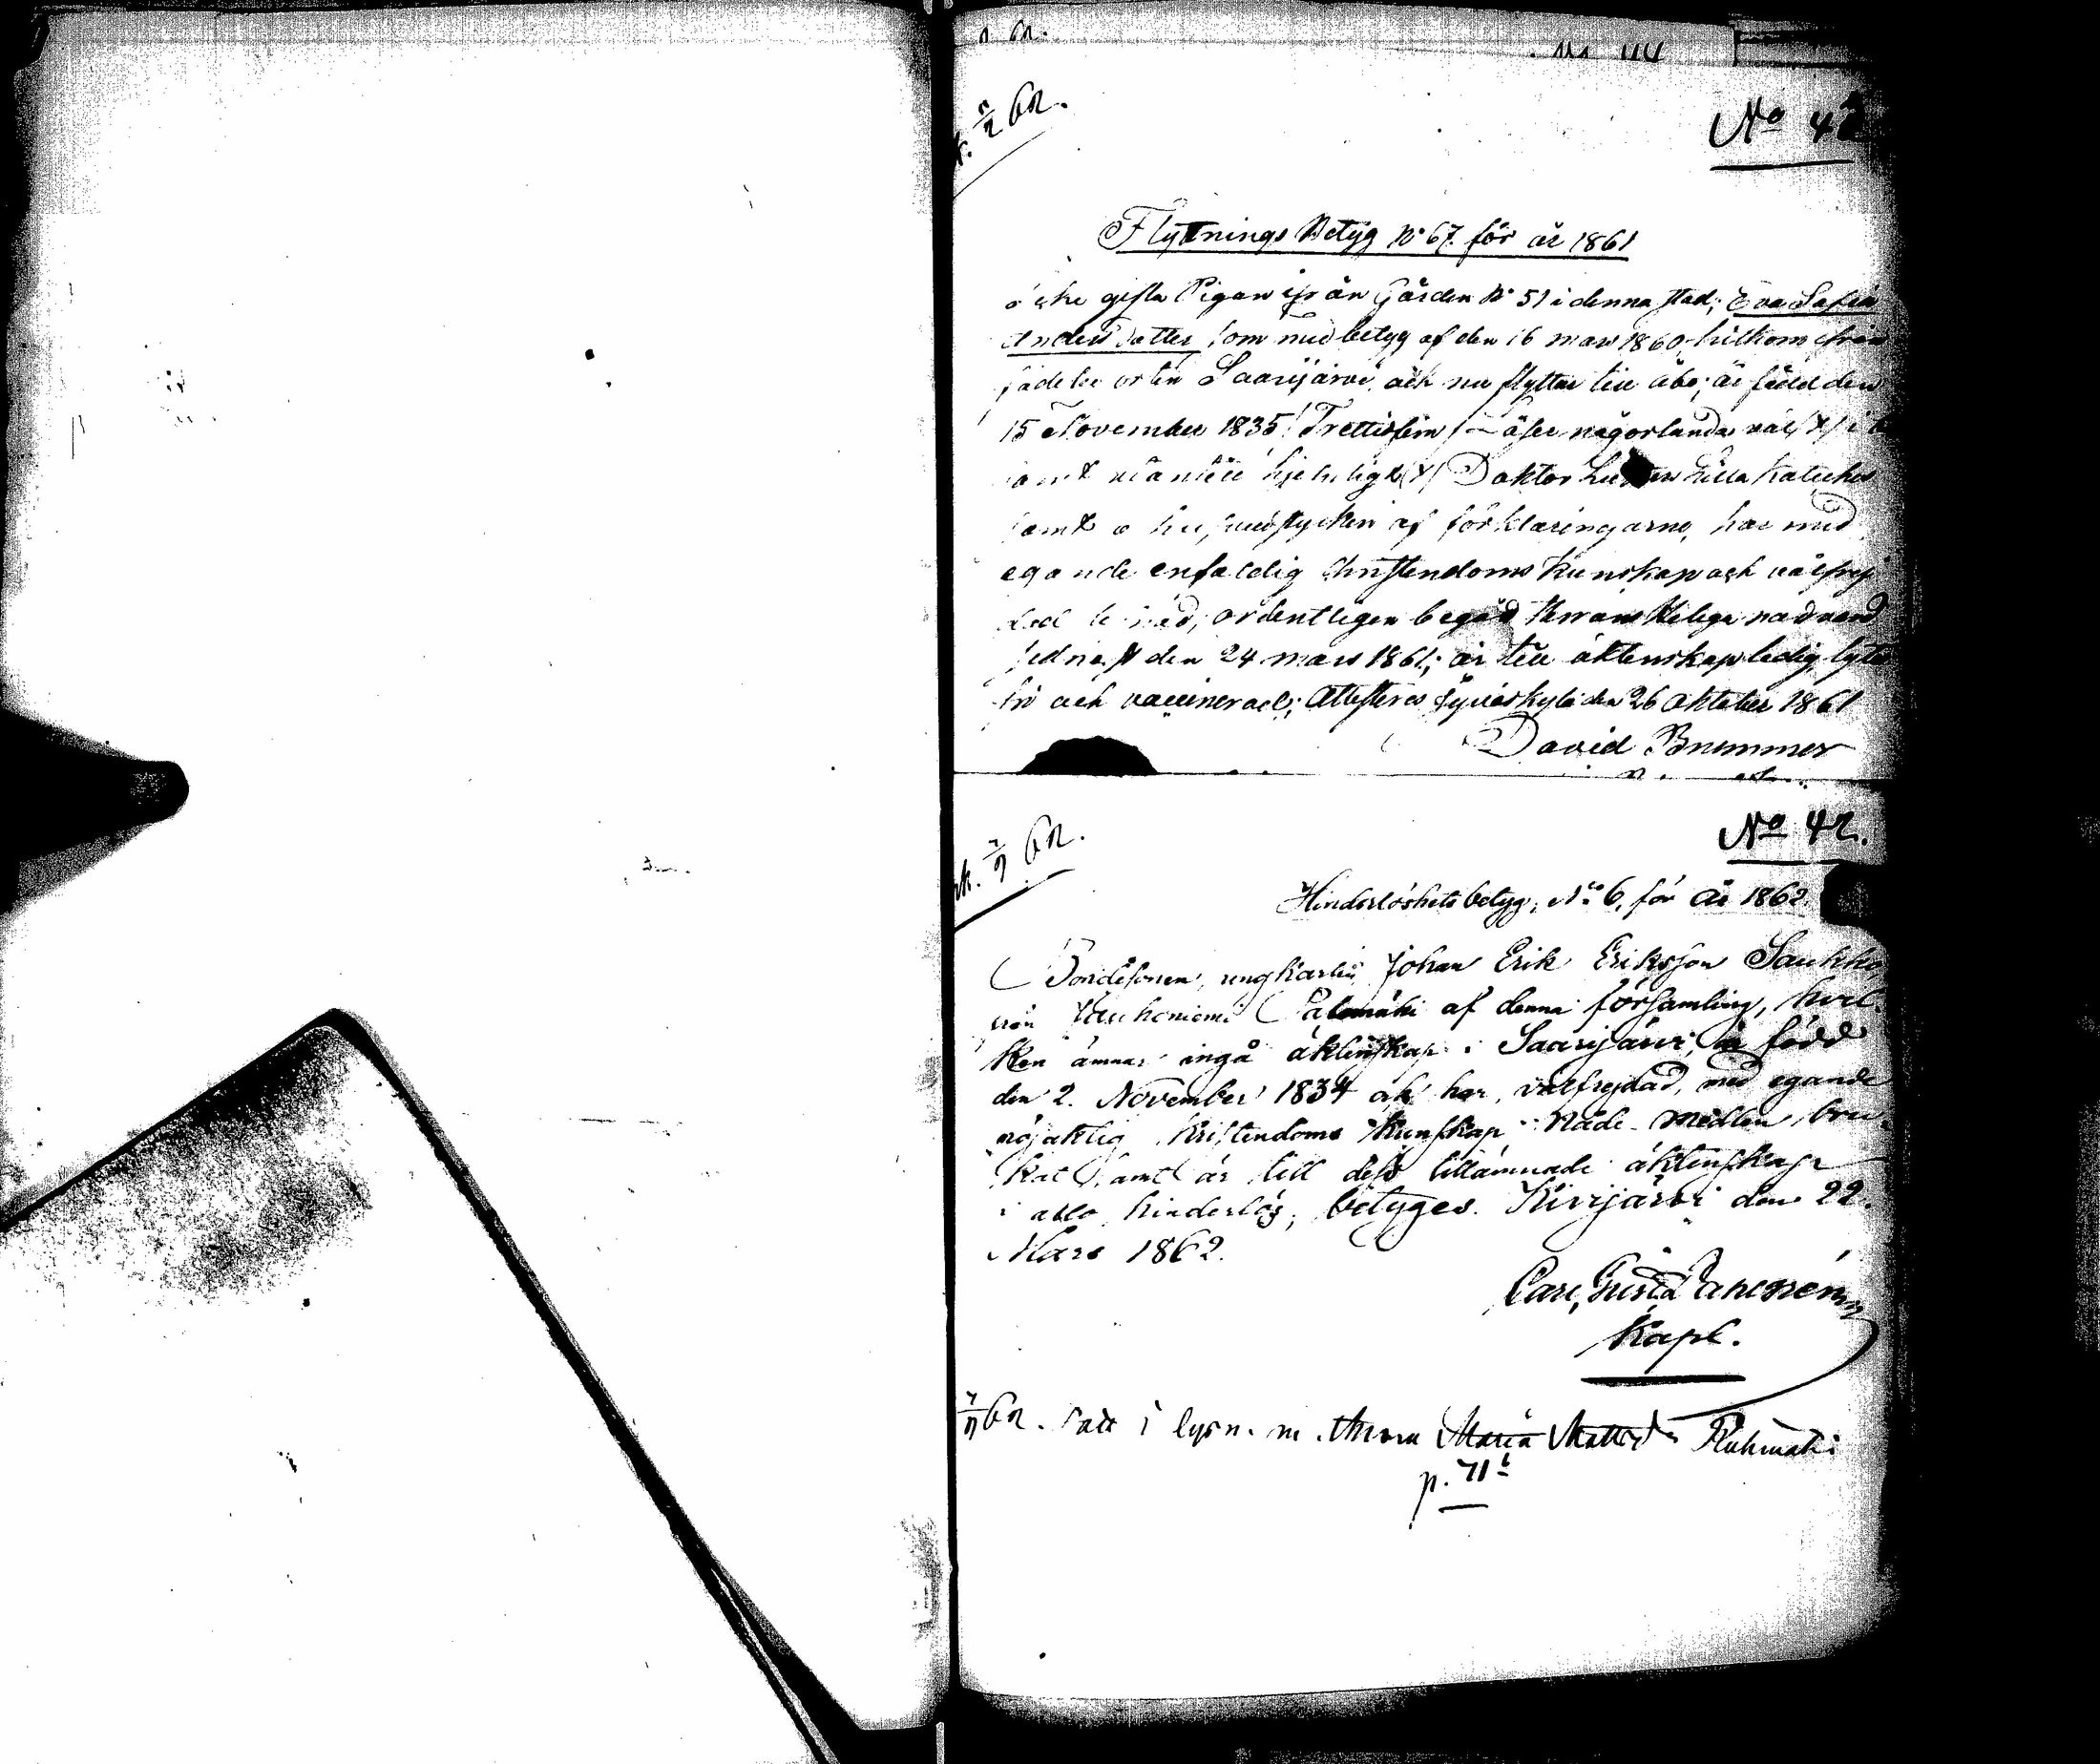 62.
No 42
Flyttnings Betyg No 67. för år 1861
ogifta Pigan ifrån Gården No 51 i denna stad; Eva Sofia
Anders dotter som med betyg af den 16 mars 1860, hitkom ifrån
födelse orten Saarijärvi och nu flyttar till Åbo; är född den
15 November 1835 / Trettiofem / Läser någorlunda väl (x) i b
samt utantill hjelpligt (x) Doktor Luthers Lilla Kateches
samt hufvudstycken af förklaringarne, har med
egande enfaldig Christendoms Kunskap och välfrej
dad, ordentligen begåd Herrans Heliga nadvard
sednast den 24 mars 1861; är till äktenskap ledig lytes
fri och vaccinerad; Attesteras Jyväskylä den 26 Oktober 1861
David Brummer
62.
No 42.
Hinderlöshets betyg, No 6, för År 1862.
Bondesonen, ungkarlen Johan Erik Eriksson Saukko,
från Palomäki af denna församling, hvil-
ken ämnar ingå äktenskap i Saarijärvi, är född
den 2. November 1834 och har, välfrejdad, med egande
nöjaktig Kristendoms Kunskap Nåde-medlen bru-
kat samt är till dess tillämnade äktenskap
i allo hinderlös, betyges. Kivijärvi den 22.
Mars 1862.
Carl Gustaf
Kapl.
62. i lysn. m. Maria Matts d.
p. 71